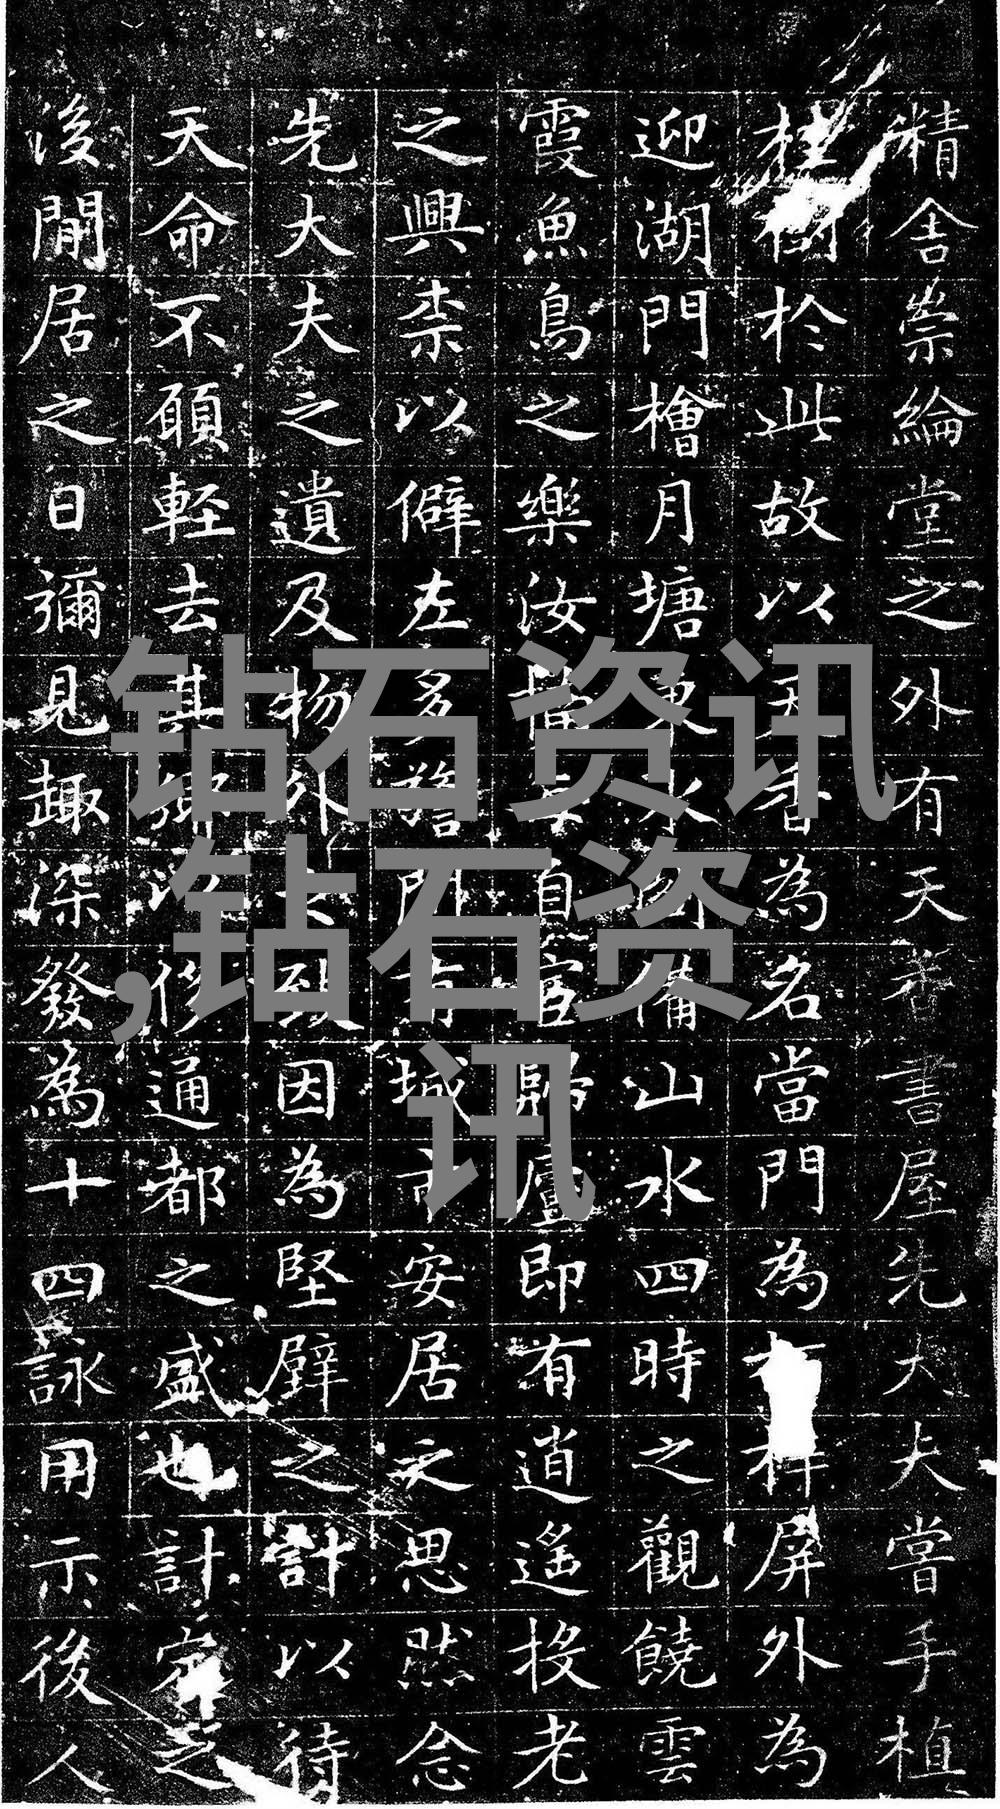 精舍崇綸堂之外有天香書屋先大夫嘗手植
桂樹於此故以天香為名當門為屏外為
迎湖門檜月塘東水備山水四時之觀饒雲
霞魚鳥之樂汝自官歸廬即有逍遙投老
之興柰以僻左多詹城市安居之思然念
先大夫之遺及物外因為堅壁之計以待
天命不願輕去其鄉侈通都之盛也計定之
後閒居之日彌見趣深發為十四詠用示後人
钻石资讯
,钻石资
讯